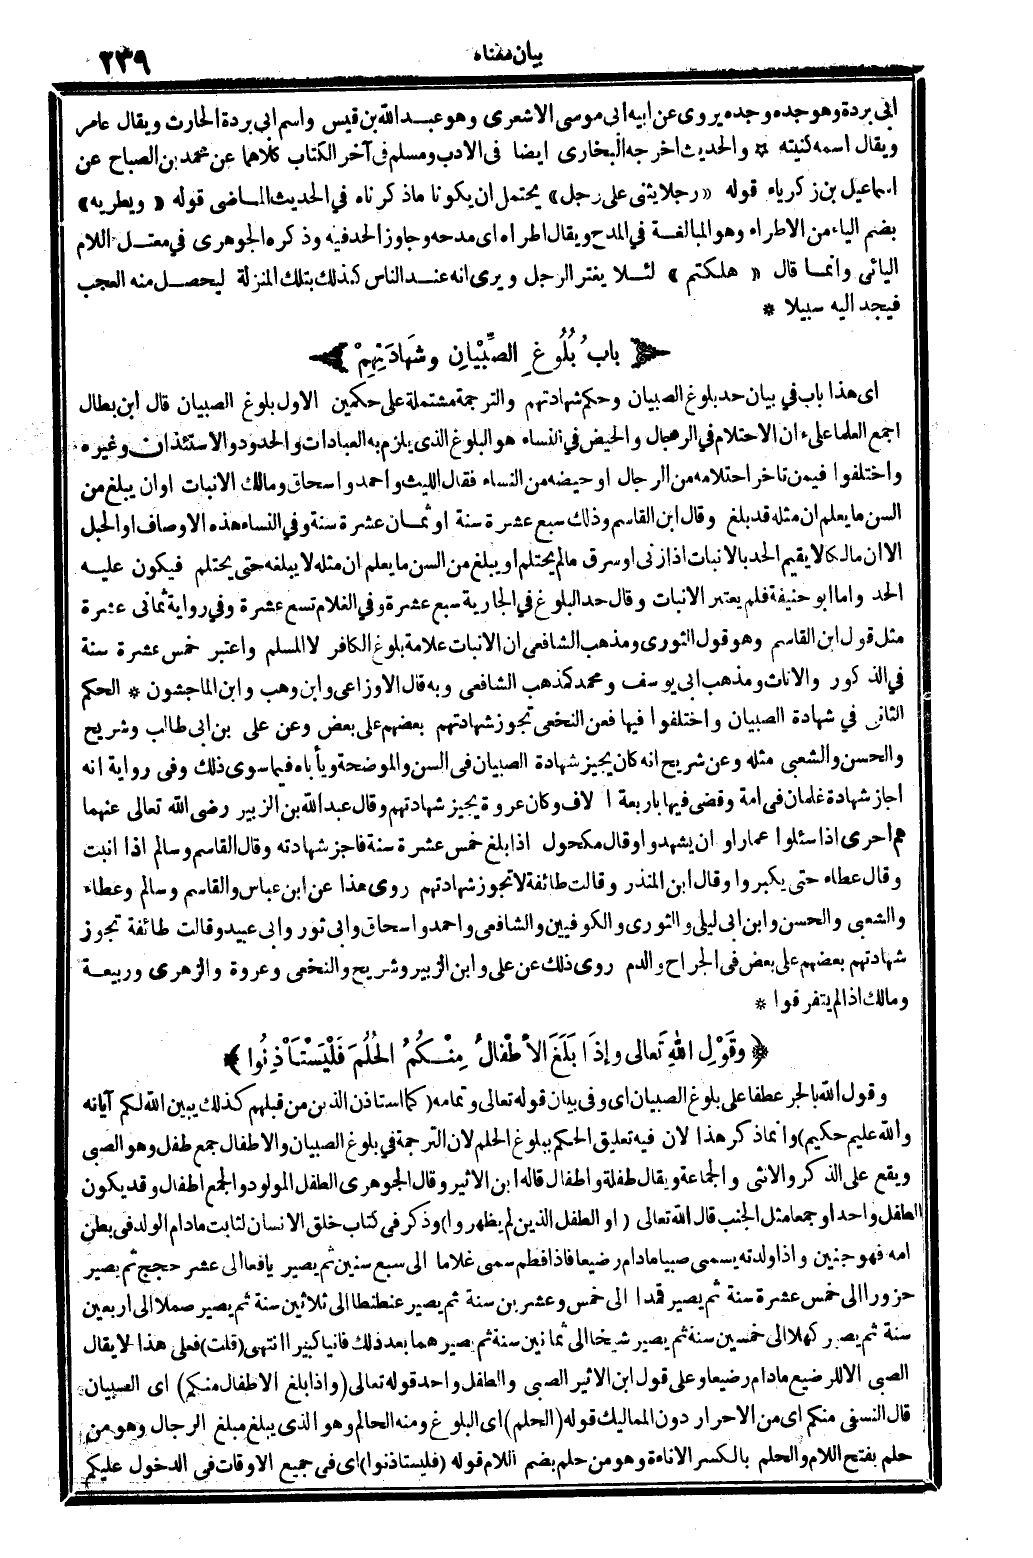 بيان معناه
٢٣٩
ابى بردة وهو جده وجده يروى عن ابيه ابى موسى الاشعرى وهو عبد الله بن قيس واسم ابى بردة الحارث ويقال عامر
ويقال اسمه كنيته * والحديث اخرجه البخارى ايضا فى الادب ومسلم فى آخر الكتاب كلاهما عن محمد بن الصباح عن
اسماعيل بن زكرياء قوله « رجلا يثنى على رجل» يحتمل ان يكونا ماذكرناه فى الحديث الماضى قوله « ويطريه»
بضم الياء من الاطراء وهو المبالغة فى المدح ويقال اطراه اى مدحه وجاوز الحد فيه وذكره الجوهرى فى معتل اللام
اليائى وانما قال « هلكتم » لئلا يغتر الرجل ويرى انه عند الناس كذلك بتلك المنزلة ليحصل منه العجب
فيجد اليه سبيلا *
باب بُلُوغِ الصِّبْيَانِ وشَهَادَتِهِمْ
اى هذا باب فى بيان حد بلوغ الصبيان وحكم شهادتهم والترجمة مشتملة على حكمين الاول بلوغ الصبيان قال ابن بطال
اجمع العلماء على ان الاحتلام فى الرجال والحيض فى النساء هو البلوغ الذى يلزم به العبادات والحدود والاستئذان وغيره
واختلفوا فيمن تاخر احتلامه من الرجال او حيضه من النساء فقال الليث واحمد واسحاق ومالك الانبات او ان يبلغ من
السن ما يعلم ان مثله قد بلغ وقال ابن القاسم وذلك سبع عشرة سنة او ثمان عشرة سنة وفى النساء هذه الاوصاف او الحبل
الا ان مالكا لا يقيم الحد بالانبات اذا زنى او سرق مالم يحتلم او يبلغ من السن ما يعلم ان مثله لا يبلغه حتى يحتلم فيكون عليه
الحد واما ابو حنيفة فلم يعتبر الانبات وقال حد البلوغ فى الجارية سبع عشرة وفى الغلام تسع عشرة وفى رواية ثمانى عشرة
مثل قول ابن القاسم وهو قول الثورى ومذهب الشافعى ان الانبات علامة بلوغ الكافر لا المسلم واعتبر خمس عشرة سنة
فى الذكور والاناث ومذهب ابى يوسف ومحمد كمذهب الشافعى وبه قال الاوزاعى وابن وهب وابن الماجشون * الحكم
الثانى فى شهادة الصبيان واختلفوا فيها فعن النخعى تجوز شهادتهم بعضهم على بعض وعن على بن ابى طالب وشريح
والحسن والشعبى مثله وعن شريح انه كان يجيز شهادة الصبيان فى السن والموضحة ويأباه فيما سوى ذلك وفى رواية انه
اجاز شهادة غلمان فى امة وقضى فيها باربعة الاف وكان عروة يجيز شهادتهم وقال عبد الله بن الزبير رضى الله تعالى عنهما
هم احرى اذا سئلوا عماراو ان يشهدوا وقال مكحول اذا بلغ خمس عشرة سنة فاجز شهادته وقال القاسم وسالم اذا انبت
وقال عطاء حتى يكبروا وقال ابن المنذر وقالت طائفة لا تجوز شهادتهم روى هذا عن ابن عباس والقاسم وسالم وعطاء
والشعبى والحسن وابن ابى ليلى والثورى والكوفيين والشافعى واحمد واسحاق وابى ثور وابى عبيد وقالت طائفة تجوز
شهادتهم بعضهم على بعض فى الجراح والدم روى ذلك عن على وابن الزبير وشريح والنخعى وعروة والزهرى وربيعة
ومالك اذا لم يتفرقوا *
﴿ وقَوْلِ اللهِ تَعالى وإذَا بَلَغَ الأَطْفالُ مِنْكُمُ الحُلُمَ فَلْيَسْتَأْذِنُوا ﴾
وقول الله بالجر عطفا على بلوغ الصبيان اى وفى بيان قوله تعالى وتمامه (كما استاذن الذين من قبلهم كذلك يبين الله لكم آياته
والله عليم حكيم) وانما ذكر هذا لان فيه تعليق الحكم ببلوغ الحلم لان الترجمة فى بلوغ الصبيان والاطفال جمع طفل وهو الصبى
ويقع على الذكر والانثى والجماعة ويقال طفلة واطفال قاله ابن الاثير وقال الجوهرى الطفل المولود والجمع اطفال وقد يكون
الطفل واحدا وجمعا مثل الجنب قال الله تعالى ( او الطفل الذين لم يظهروا) وذكر فى كتاب خلق الانسان لثابت مادام الولد فى بطن
امه فهو جنين واذا ولدته يسمى صبيا مادام رضيعا فاذا فطم سمى غلاما الى سبع سنين ثم يصير يافعا الى عشر حجج ثم يصير
حزورا الى خمس عشرة سنة ثم يصير قمدا الى خمس وعشرين سنة ثم يصير عنطنطا الى ثلاثين سنة ثم يصير صملا الى اربعين
سنة ثم يصير كهلا الى خمسين سنة ثم يصير شيخا الى ثمانين سنة ثم يصير هما بعد ذلك فانيا كبيرا انتهى (قلت) فعلى هذا لا يقال
الصبى الا للرضيع مادام رضيعا وعلى قول ابن الاثير الصبى والطفل واحد قوله تعالى (واذا بلغ الاطفال منكم) اى الصبيان
قال النسفى منكم اى من الاحرار دون المماليك قوله (الحلم) اى البلوغ ومنه الحالم وهو الذى يبلغ مبلغ الرجال وهو من
حلم بفتح اللام والحلم بالكسر الاناءة وهو من حلم بضم اللام قوله (فليستاذنوا) اى فى جميع الاوقات فى الدخول عليكم